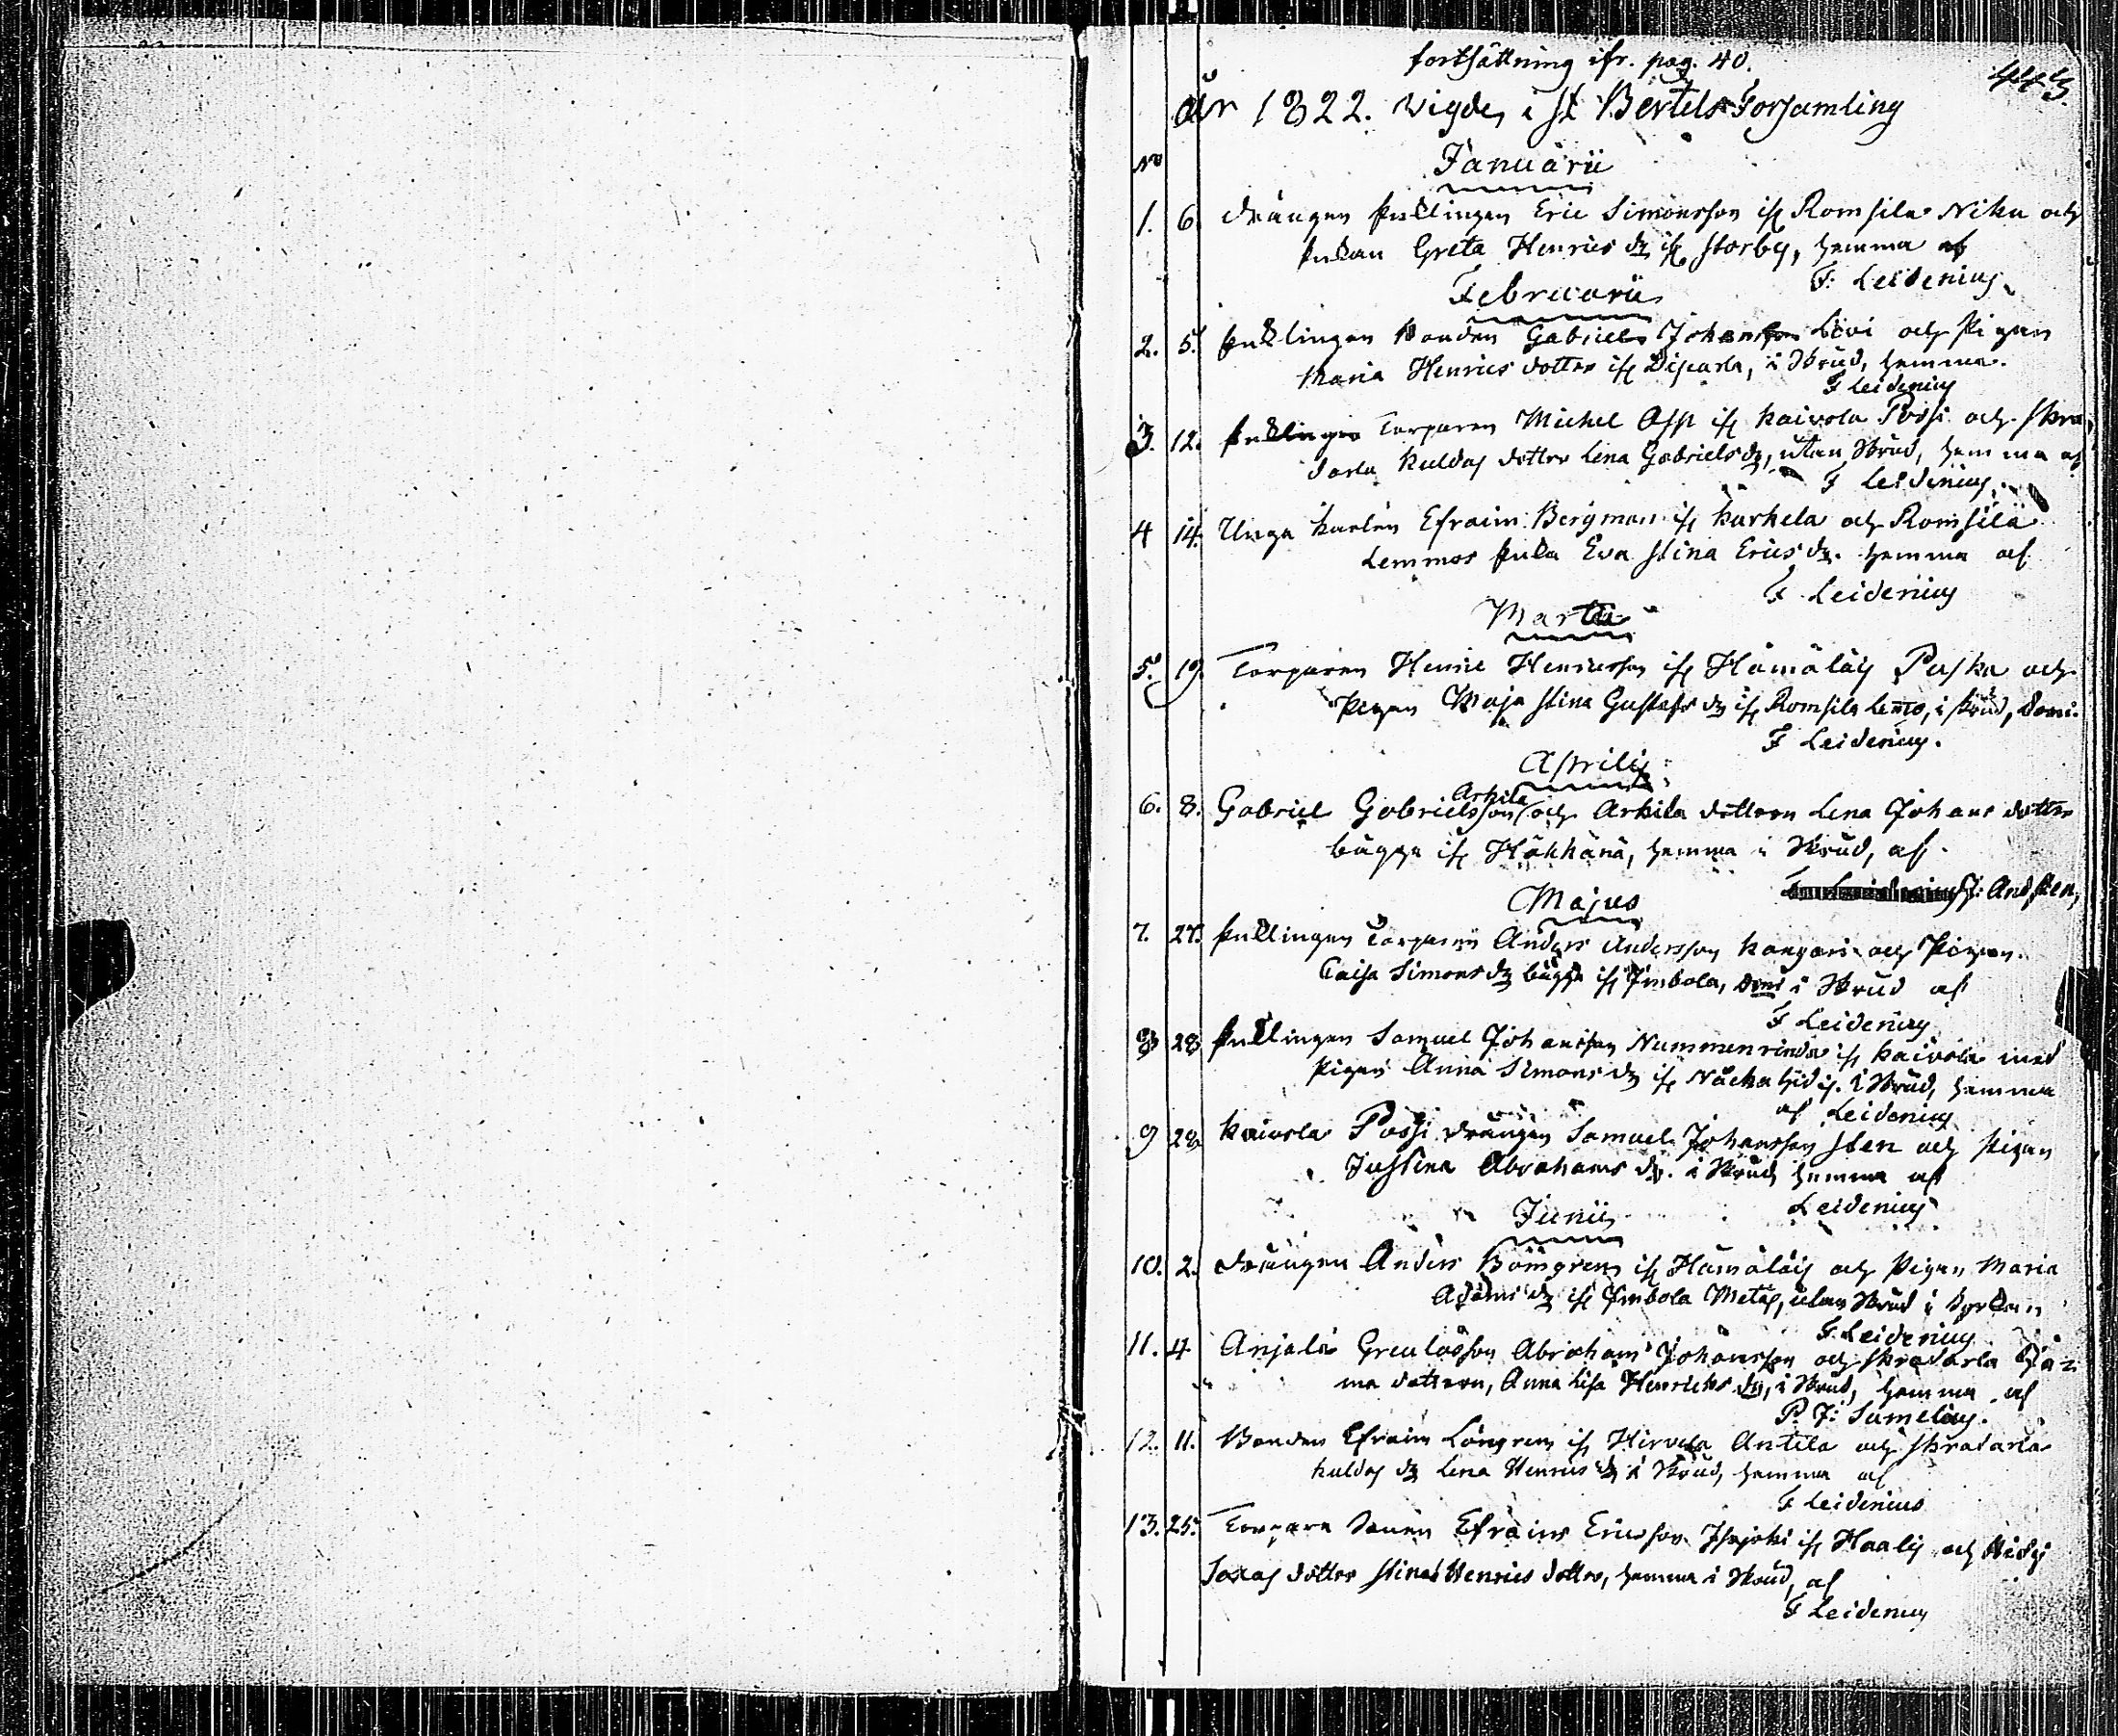 fortsättning ifr. pag. 40.
443.
år 1822. Vigde, i St Bertels Forsamling
No Januarii
1. 6. Drängen Enklingen Eric Simonsson ifr Romsila Niku och
Enkan Greta Henrics dr ifr Storby, hemma af
F: Leidenius
Februarii
2. 5. Enklingen Bonden Gabriel Johansson Livi och Pigan
Maria Henrics dotter ifr Disearla, i Skrud, hemma.
F Leidenius
3. 12. Enklingen Torparen Michel Asp ifr Kaivola Possi och Skra
darla Huldas dotter Lena Gabriels dr, utan Skrud, hemma af
F Leidenius
4 14. Unga karlen Efraim Bergman ifr Karhela och Romsilä
Lemmos Enka Eva Stina Erics dr. hemma af
F Leidenius
Martii
5. 19. Torparen Henric Henricsson ifr Hämäläis Paska och
Pigan Maja Stina Gustafs dr ifr Romsila Lemo, i Skrud, domi.
F Leidenius.
Aprilis
Arkila
6. 8. Gabriel Gabrielsson och Arkila dottern Lena Johans dotter
bägge ifr Häkhänä, hemma i Skrud, af
F: Andsten,
Majus
7. 27. Enklingen Torparen Anders Andersson Kangari och Pigan
Caisa Simons dr bägge ifr Imbola, domi i Skrud af
F Leidenius
8 28 Enklingen Samuel Johansson Nummenrinda ifr Kaivola med
Pigan Anna Simons dr ifr i Skrud, hemma
af Leidenius
9 28 Kaivola Possi drängen Samuel Johansson Sten och Pigan
Justina Abrahams dr. i Skrud hemma af
Leidenius
Junii
10. 2. Drängen Anders Bömgren ifr Hämäläis och Pigan Maria
Adams dr ifr Imbola Metas, utan Skrud i Kyrkan
F. Leidenius
11. 4 Anjala Abraham Johansson och Skradarla Jä=
ma dottern, Anna Lisa Henrichs dr, i Skrud, hemma af
P. J: Sumelius.
12. 11. Bonden Efraim Löngren ifr Hirvela Antila och Skradarla
Huldas dr Lena Henrics dr i Skrud, hemma af
F Leidenius
13. 25. Torpare Sonen Efraim Ericsson Isojoki ifr Haalis och
Saxas dotter Stina Henrics dotter, hemma i Skrud, af
F Leidenius